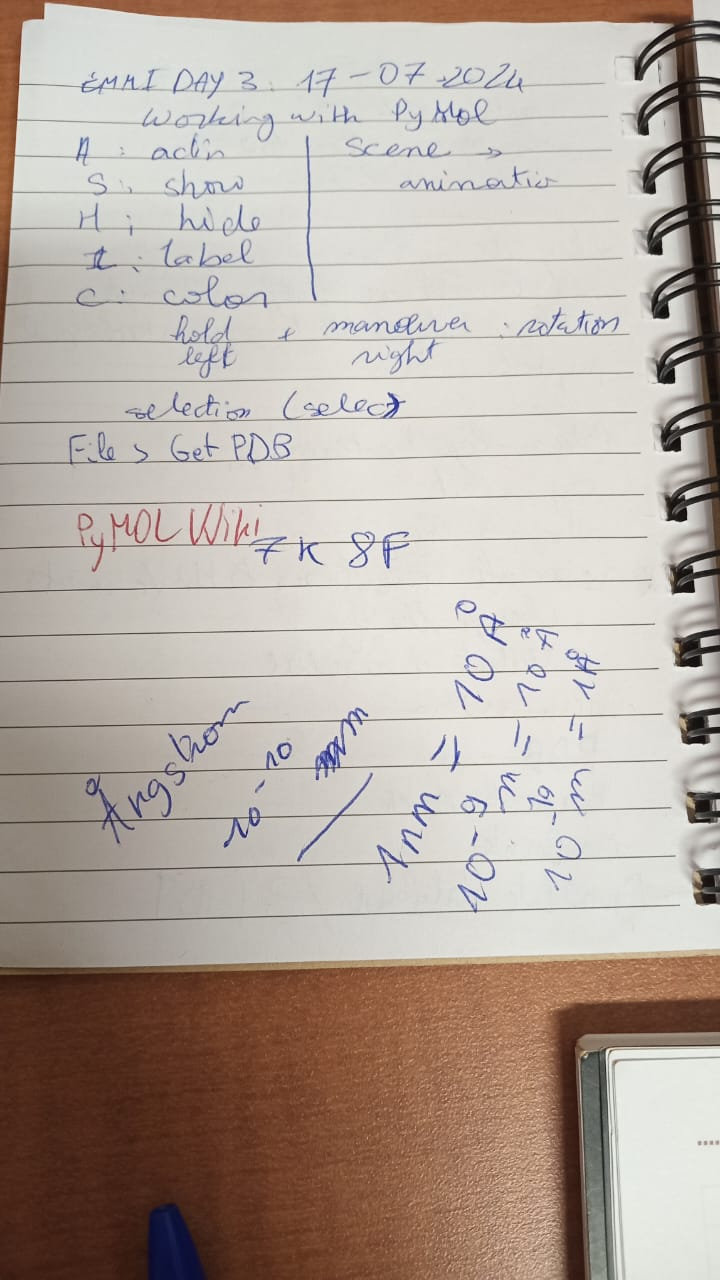 EMMI DAY 3: 17-07-2024
Working with PyMol
A : actin
S : show
H : hide
L : label
C : color
Scene >
animatio
hold + manoever : rotation
left right
selection (select)
File > Get PDB
PyMOL Wiki
7K 8F
Ångstrom
10-10 m
1nm = 10 Å
10-9 m = 10 Å
10 m = 1Å